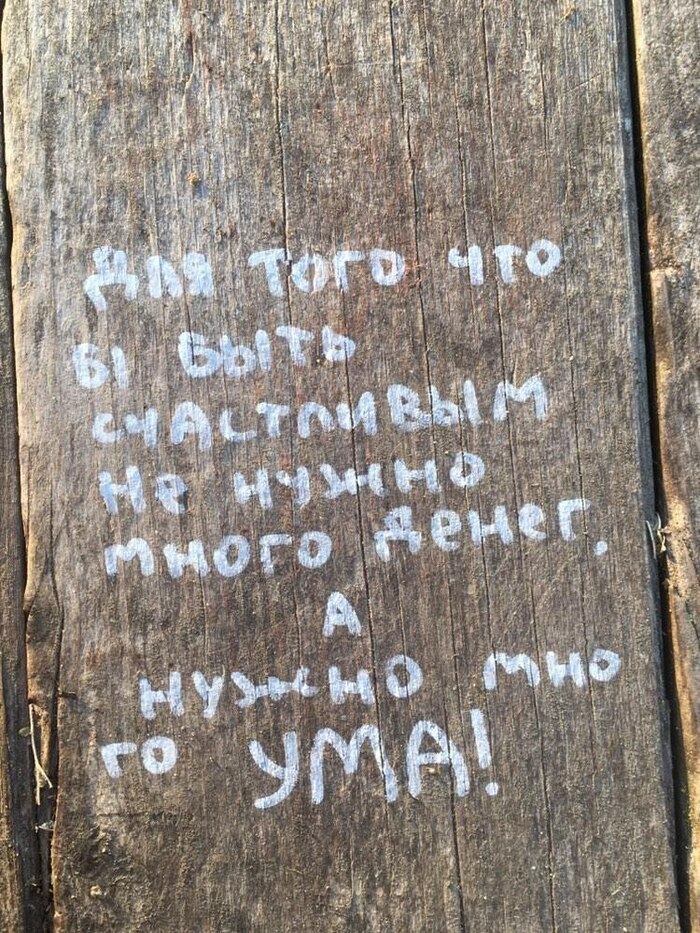 Для того что
бы быть
счастливым
не нужно
много денег,
а
нужно мно
го УМА!